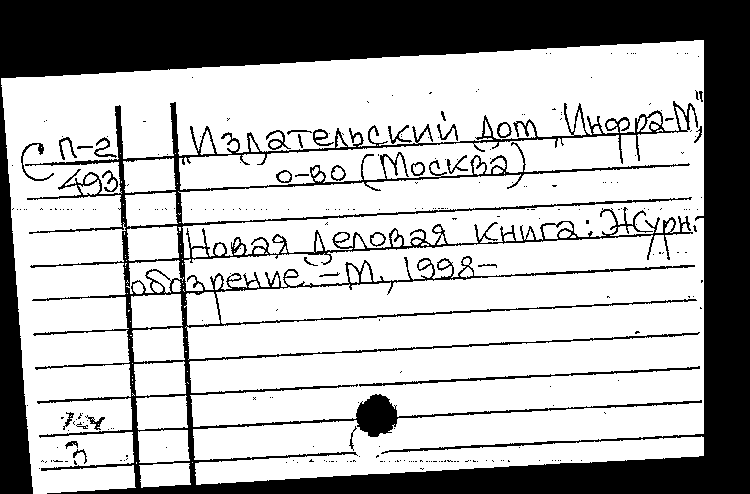 С П-2 "Издательский дом "Инфра-М",
493 о-во (Москва)
Новая деловая книга: Журн.-
обозрение. – М., 1998–